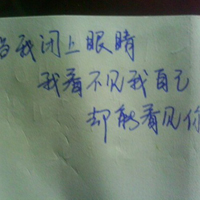 当我闭上眼睛
我看不见我自己
却能看见你